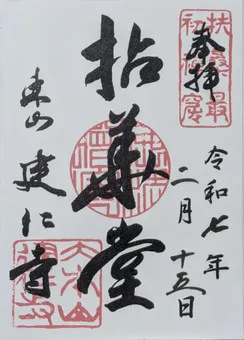 扶桑最
初禅窟
奉拝
令和七年
二月
十五日
拈華堂
東山 建仁寺
大本山
建仁寺